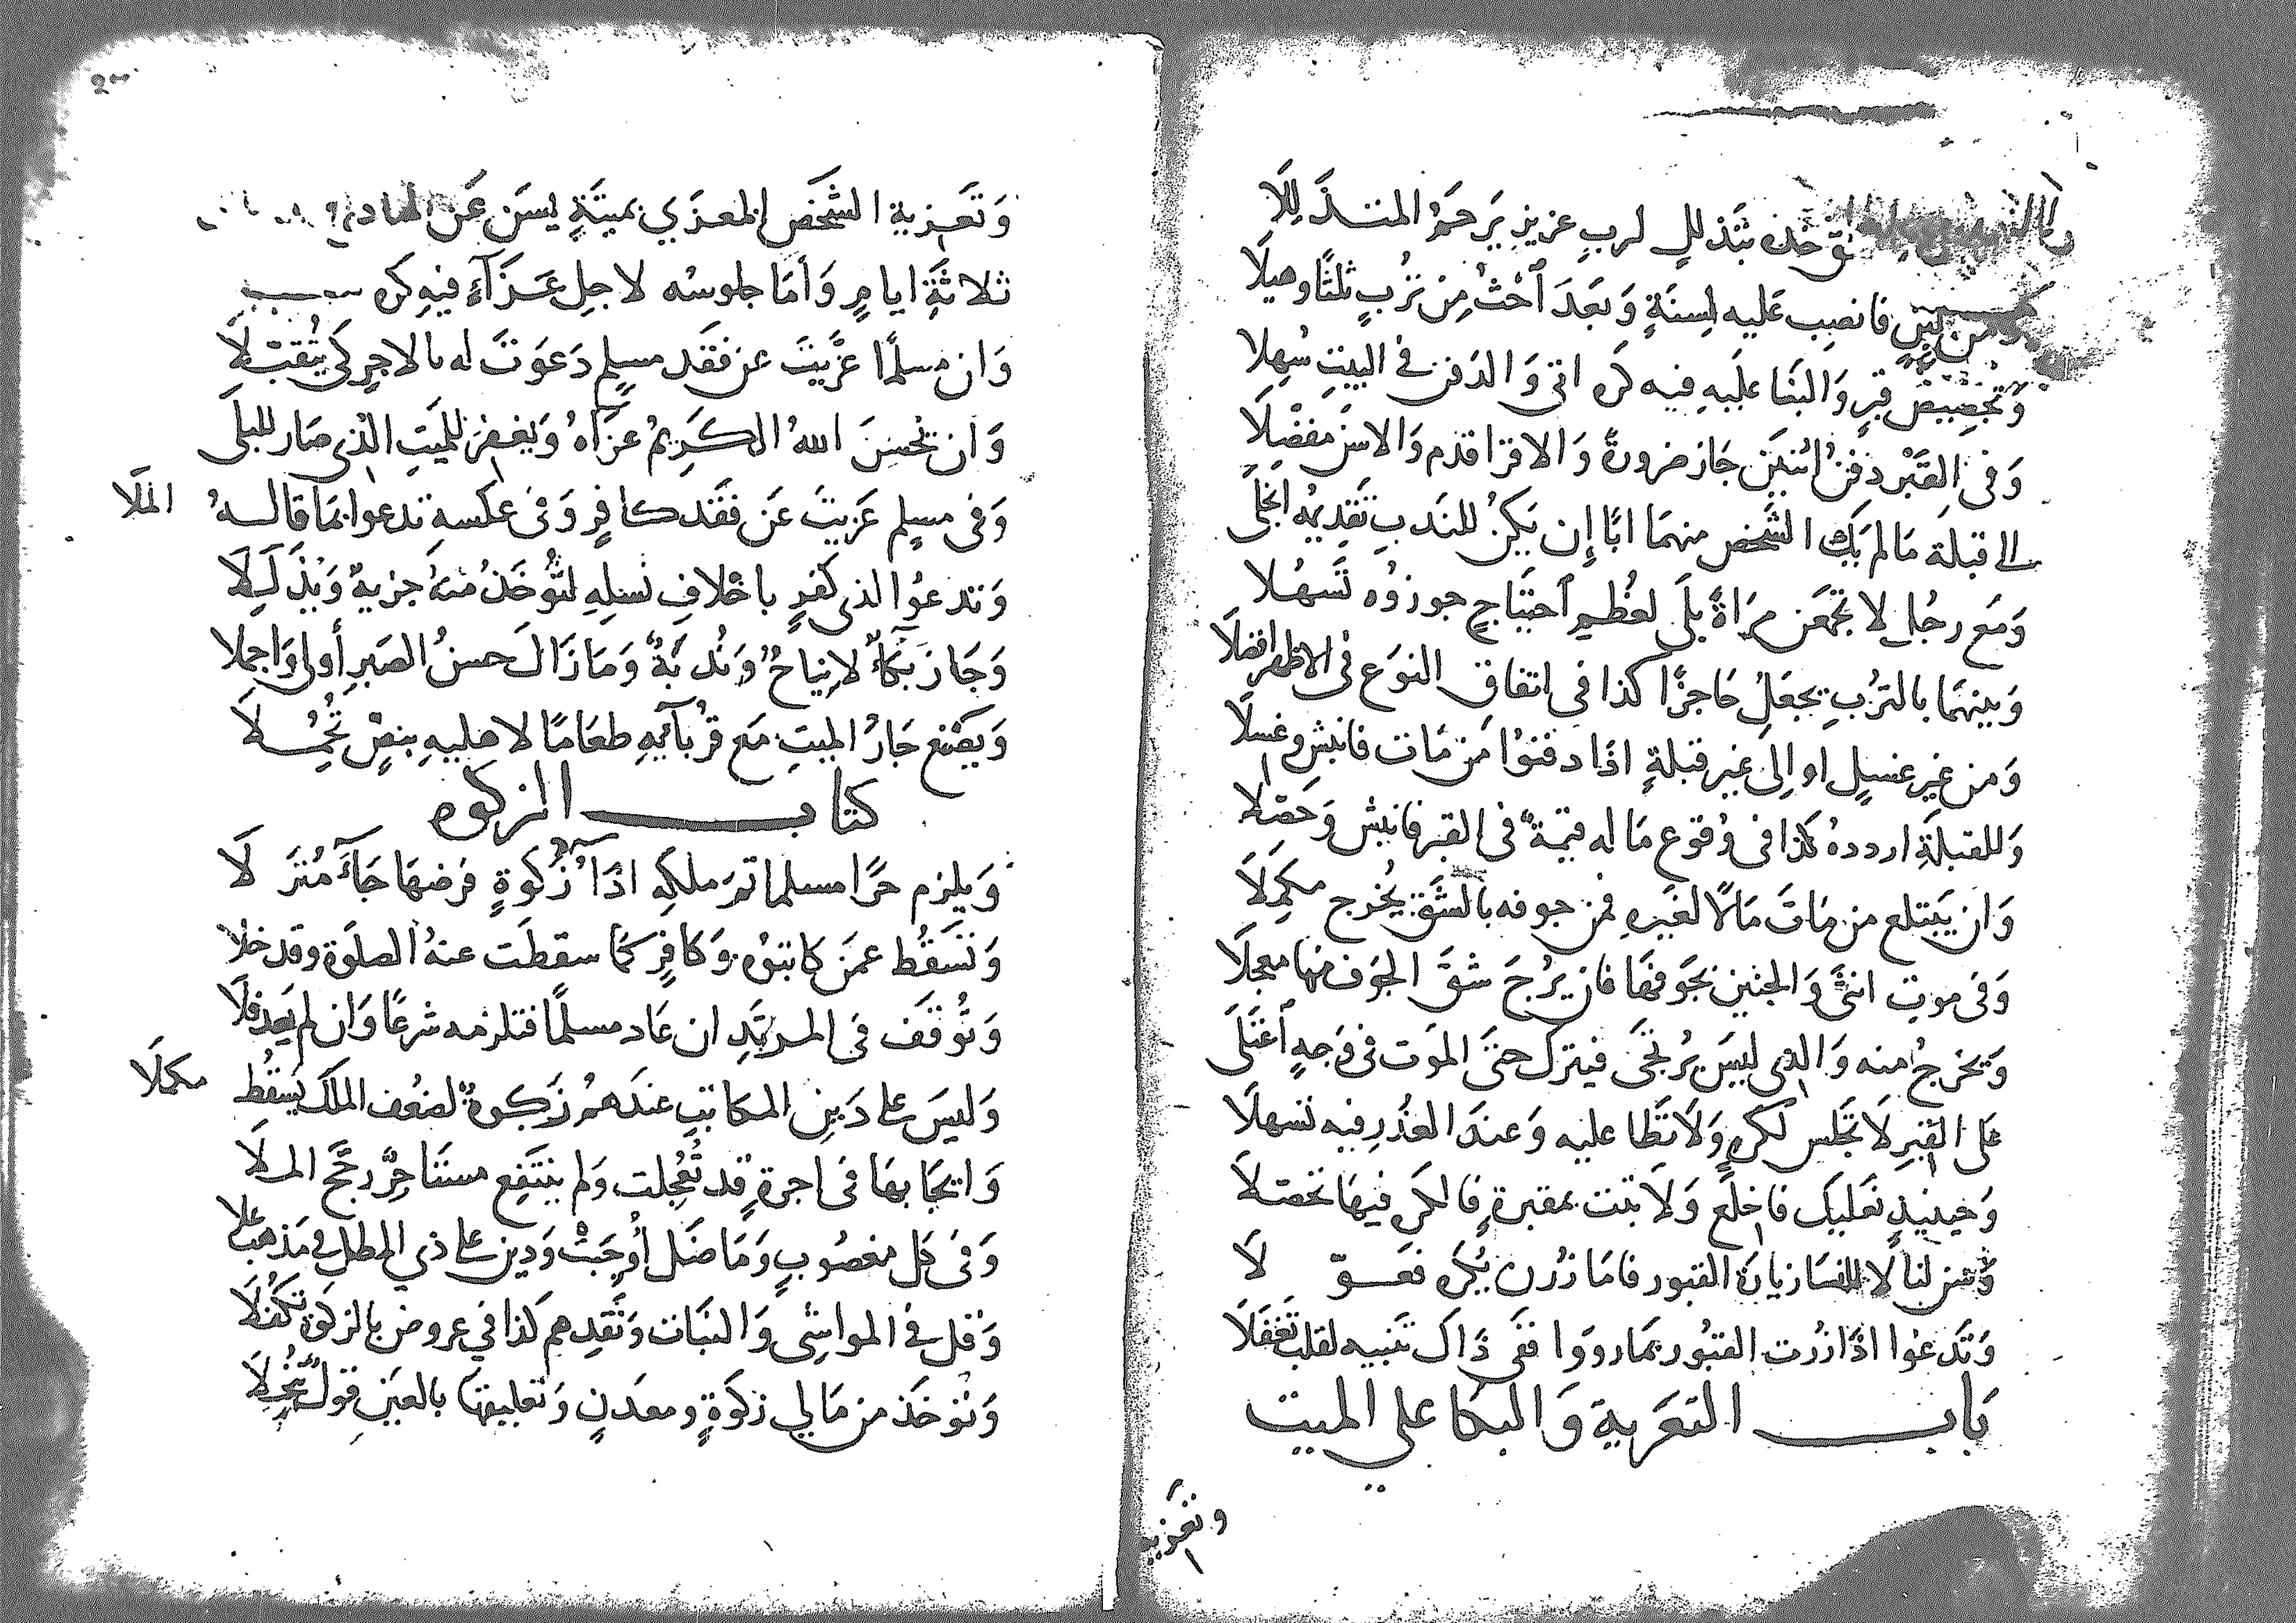 خده بتذلل لرب عزيز يرحم المتذللا
لبن فانصب عليه لسنة وبعد احث من ترب ثلثا وهيلا
وتجصيص قبر والبنا عليه فيه كره اتى والدفن في البيت سهلا
وفى القبر دفن اثنين جاز ضرورة والاقرا قدم والاسن مفضلا
الى قبلة مالم يك الشخص منهما ابا إن يكن للندب تقديمه انجلى
ومع رجل لا تجمعن مراة بلى لعظم احتياج جوزوه تسهلا
وبينهما بالترب يجعل حاجزا كذا في اتفاق النوع فى الاظهر افضلا
ومن غير غسل او الى غير قبلة اذا دفنوا من مات فانبش وغسلا
وللقبلة اردده كذا فى وقوع ما له قيمة فى القبر فانبش وحصلا
وان يبتلع من مات مالا لغيره فمن جوفه بالشق يخرج مكملا
وفى موت انثى والجنين بجوفها فان يرج شق الجوف منها معجلا
ويخرج منه والذى ليس يرتجى فيترك حتى الموت فى وجه اعتلى
على القبر لا تجلس لكره ولا تطا عليه وعند العذر فيه تسهلا
وحينيذ نعليك فاخلع ولا تبت بمقبرة فالكره فيها تحصلا
وسن لنا لا للنسا زيارة القبور فاما زرن يكره فعولا
وتدعوا اذا زرت القبور بما رووا ففى ذاك تنبيه لقلب تغفلا
باب التعزية والبكا على الميت
وتعزية
وتعزية الشخص المعزي بميتة يسن عن
ثلاثة ايام واما جلوسه لاجل عزآء فيه كره
وان مسلما عزيت عن فقد مسلم دعوت له بالاجر كى يتقبلا
وان تحسن الله الكريم عزاه ويغفر للميت الذى صار للبلى
وفى مسلم عزيت عن فقد كافر وفى عكسه تدعوا بما قاله الملا
وتدعوا لذى كفر باخلاف نسله لتؤخذ منه جزية ويذللا
وجاز بكاء لا نياح وندبة وما زال حسن الصبر أولى واجملا
ويصنع جار الميت مع قربآئه طعاما لاهليه بنص تحملا
كتاب الزكوه
ويلزم حرا مسلما تم ملكه اذا زكوة فرضها جآء منزلا
وتسقط عمن كاتبوه وكافر كما سقطت عنه الصلوة وقد خلا
وتوقف فى المرتد ان عاد مسلما فتلزمه شرعا وان لم يعد فلا
وليس على دين المكاتب عندهم زكوة لضعف الملك يسقط مكملا
وايجابها فى اجرة قد تعجلت ولم ينتفع مستاجر رجح الملا
وفى كل مغصوب وما ضل أوجبت ودين على ذي المطل فى مذهب علا
وقل فى المواشى والنبات ونقدهم كذا في عروض بالزكوة تكفلا
وتوخذ من مالي زكوة ومعدن وتعليقها بالعين قول